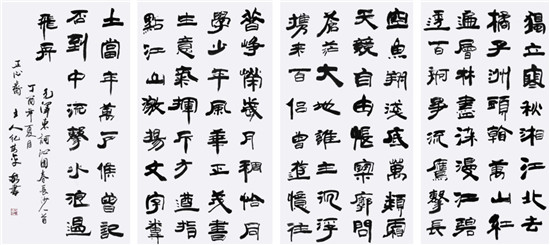 獨立寒秋湘江北去
橘子洲頭看萬山紅
遍層林盡染漫江碧
透百舸爭流鷹擊長
空魚翔淺底萬類霜
天競自由悵寥廓問
蒼茫大地誰主沉浮
攜來百侶曾遊憶往
昔崢嶸歲月稠恰同
學少年風華正茂書
生意氣揮斥方遒指
點江山激揚文字糞
土當年萬戶侯曾記
否到中流擊水浪遏
飛舟
毛澤東詞沁園春長沙一首
丁酉年夏月
主人
書